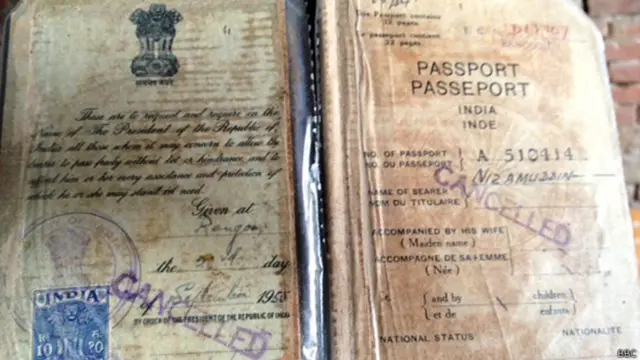 सत्यमेव जयते
These are to request and require in the
Name of The President of the Republic of
India all those whom it may concern to allow the
bearer to pass freely without let or hindrance, and to
afford him or her every assistance and protection of
which he or she may stand in need.
Given at
Rangoon
the day
September 1958
BY ORDER OF THE PRESIDENT OF THE REPUBLIC OF INDIA
CANCELLED
CANCELLED
INDIA
Passport contains
32 pages.
passeport contient
32 pages.
PASSPORT
PASSEPORT
INDIA
INDE
NO. OF PASSPORT
NO. DU PASSEPORT
A 510414
NAME OF BEARER
NOM DU TITULAIRE
NIZAMUDDIN
CANCELLED
ACCOMPANIED BY HIS WIFE
(Maiden name)
ACCOMPAGNE DE SA FEMME
(Née)
and by children
et de enfants
NATIONAL STATUS NATIONALITE
BBC